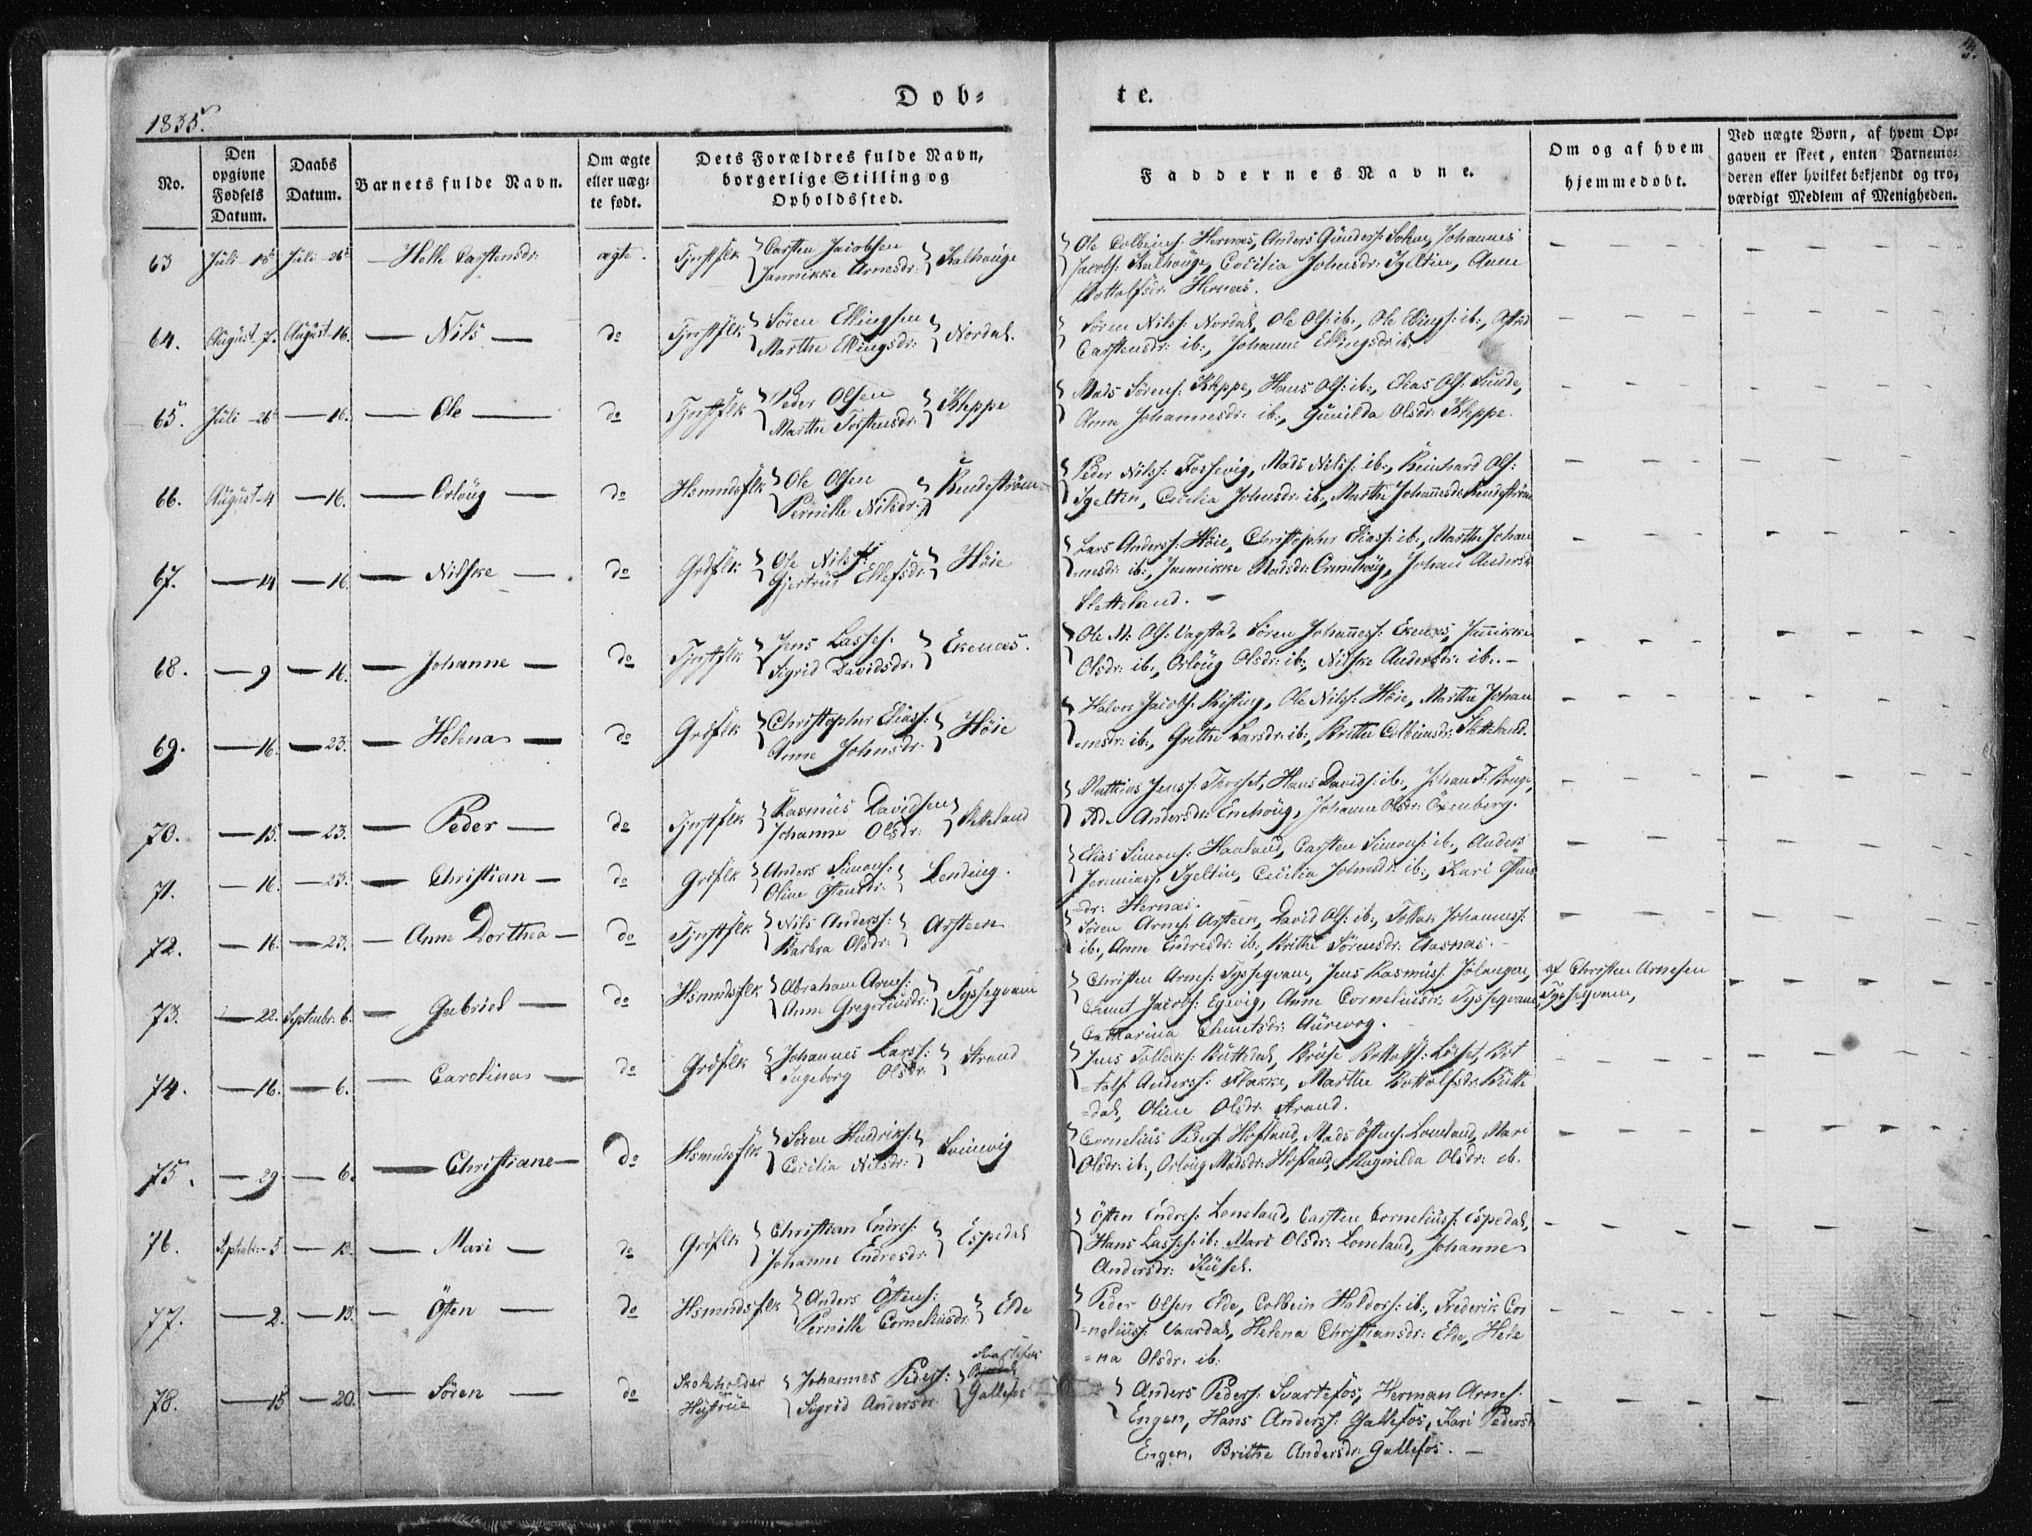 1835.
Døb=
te.
No.
Den opgivne Fødsels Datum.
Daabs Datum.
Barnets fulde Navn.
Om ægte eller uæg= te født.
Dets Forældres fulde Navn, borgerlige Stilling og Opholdssted.
Faddernes Navne.
Om og af hvem hjemmedøbt.
Ved uægte Børn, af hvem Op= gaven er skeet, enten Barnemo= deren eller hvilket bekjendt og tro= værdigt Medlem af Menigheden.
63 Juli 18 Juli 26 — Helle Carstensdr: ægte. Tjnstflk Carsten Jacobsen Jannikke Arnesdr: Kalhouge
Ole Colbeins: Hernæs, Anders Gunders: Johannes
Jacobs: Kalhouge, Cecilia Johnsdr: Igeltin, Anne
Bottolfsdr: Hernæs.
64. August 7. August 16. — Nils — do Tjnstflk Søren Ellingsen Marthe Ellingsdr: Nordal.
Søren Nilss: Nordal, Ole Ols: ib:, Ole Ellings: ib:,
Carstensdr: ib:, Johanne Ellingsdr: ib:
65. Juli 26 — 16. — Ole — do Tjnstflk Peder Olsen Marthe Torstensdr: Kleppe
Mads Sørens: Kleppe, Hans Ols: ib:, Elias Ols: Sunde,
Anne Johannesdr: ib:, Gunilda Olsdr: Kleppe.
66. August 4 — 16. — Orloug — do Hsmndsflk Ole Olsen Pernille Nilsdr: Rendestrøm
Peder Nilss: Fossevig, Mads Nilss: ib:, Reinhard Ols:
Igeltin, Cecilia Johnsdr: ib:, Marthe Johannesdr: Rendestrøm
67. — 14 — 16. — Nilske — do Grdflk Ole Nilss: Gjertrud Ellefsdr: Høie
Lars Anderss: Høie, Christopher Eliass: ib:, Marthe Johan
=nesdr: ib:, Jannikke Madsdr: Johan Anderss:
Sletteland. —
68. — 9 — 16. — Johanne — do Tjnstflk Jens Lasses: Sigrid Davidsdr: Ekenæs.
Ole M: Ols: Vagstad, Søren Johanness: Ekenæs, Jannikke
Olsdr: ib:, Orloug Olsdr: ib:, Nilske Andersdr: ib:. —
69. — 16. — 23. — Helena — do Grdflk Christopher Eliass: Anne Johnsdr: Høie
Halvor Jacobs: Risting, Ole Nilss: Høie, Marthe Johan
=nesdr: ib:, Grethe Larsdr: ib:, Brithe Colbeinsdr: Sletteland.
70. — 15. — 23. — Peder — do Tjnstflk Rasmus Davidsen Johanne Olsdr: Sletteland
Matthias Jenss: Thorset, Hans Davids: ib:, Johan F:
Andersdr: Enehoug, Johanne Olsdr: Oxenberg.
71. — 16. — 23. — Christian — do Grdflk Anders Simons: Oline Østensdr: Lendeng.
Elias Simons: Haaland, Carsten Simons: ib:, Anders
Jeremiass: Igeltin, Cecilia Johnsdr: ib:, Kari Østens
=dr: Hernæs.
72. — 16. — 23. — Anne Dorthea — do Tjnstflk Nils Anderss: Barbra Olsdr: Arsteen
Søren Arnes: Arsteen, David Ols: ib:, Tollak Johanness:
ib:, Anne Endresdr: ib:, Brithe Sørensdr: Aasnæs. —
73. — 22. September 6. — Gabriel — do Hsmndsflk Abraham Arnes: Anne Gregoriusdr: Tyssegvam
Christen Arnes: Tyssegvam, Jens Rasmuss: Solangen,
Chunt Jacobs: Egevig, Anne Corneliusdr: Tyssegvam
Catharina Chuntsdr: Aurevog.
af Christen Arnesen
Tyssegvam,
74. — 16. — 6. — Carolina — do Grdflk Johannes Larss: Ingeborg Olsdr: Strand
Jens Tollaks: Buttedal, Bruse Bottolfs: Løset, Bot
=tolf Anderss: Flække, Marthe Bottolfsdr: Butte
=dal, Oline Olsdr: Strand.
75. — 29 — 6. — Christiane — do Hsmndsflk Søren Hendriks: Cecilia Nilsdr: Leinevig
Cornelius Peders: Hofland, Mads Østens: Loneland, Mari
Olsdr: ib:, Orloug Madsdr: Hofland, Ragnilda Olsdr: ib.
76. Septembr: 5. — 13. — Mari — do Grdflk Christian Endres: Johanne Endresdr: Espedal
Østen Endres: Loneland, Carsten Corneliuss: Espedal,
Hans Lasses: ib: Mari Olsdr: Loneland, Johanne
Andersdr:
77. — 2. — 13. — Østen — do Hsmndsflk Anders Østens: Pernille Corneliusdr: Elde
Peder Olsen Elde, Colbein Haldors: ib:, Frederik Cor
=neliuss: Vaardal, Helena Christiansdr: Elde, Hele
=na Olsdr. ib:
78. — 15 — 20. — Søren — do Skoleholder Hustrue Johannes Peders: Sigrid Andersdr: Svartefos Gallefos
Anders Peders: Svartefos, Herman Arnes:
Engen, Hans Anderss: Gallefos, Kari Pedersdr:
Engen, Brithe Andersdr: Gallefos. —